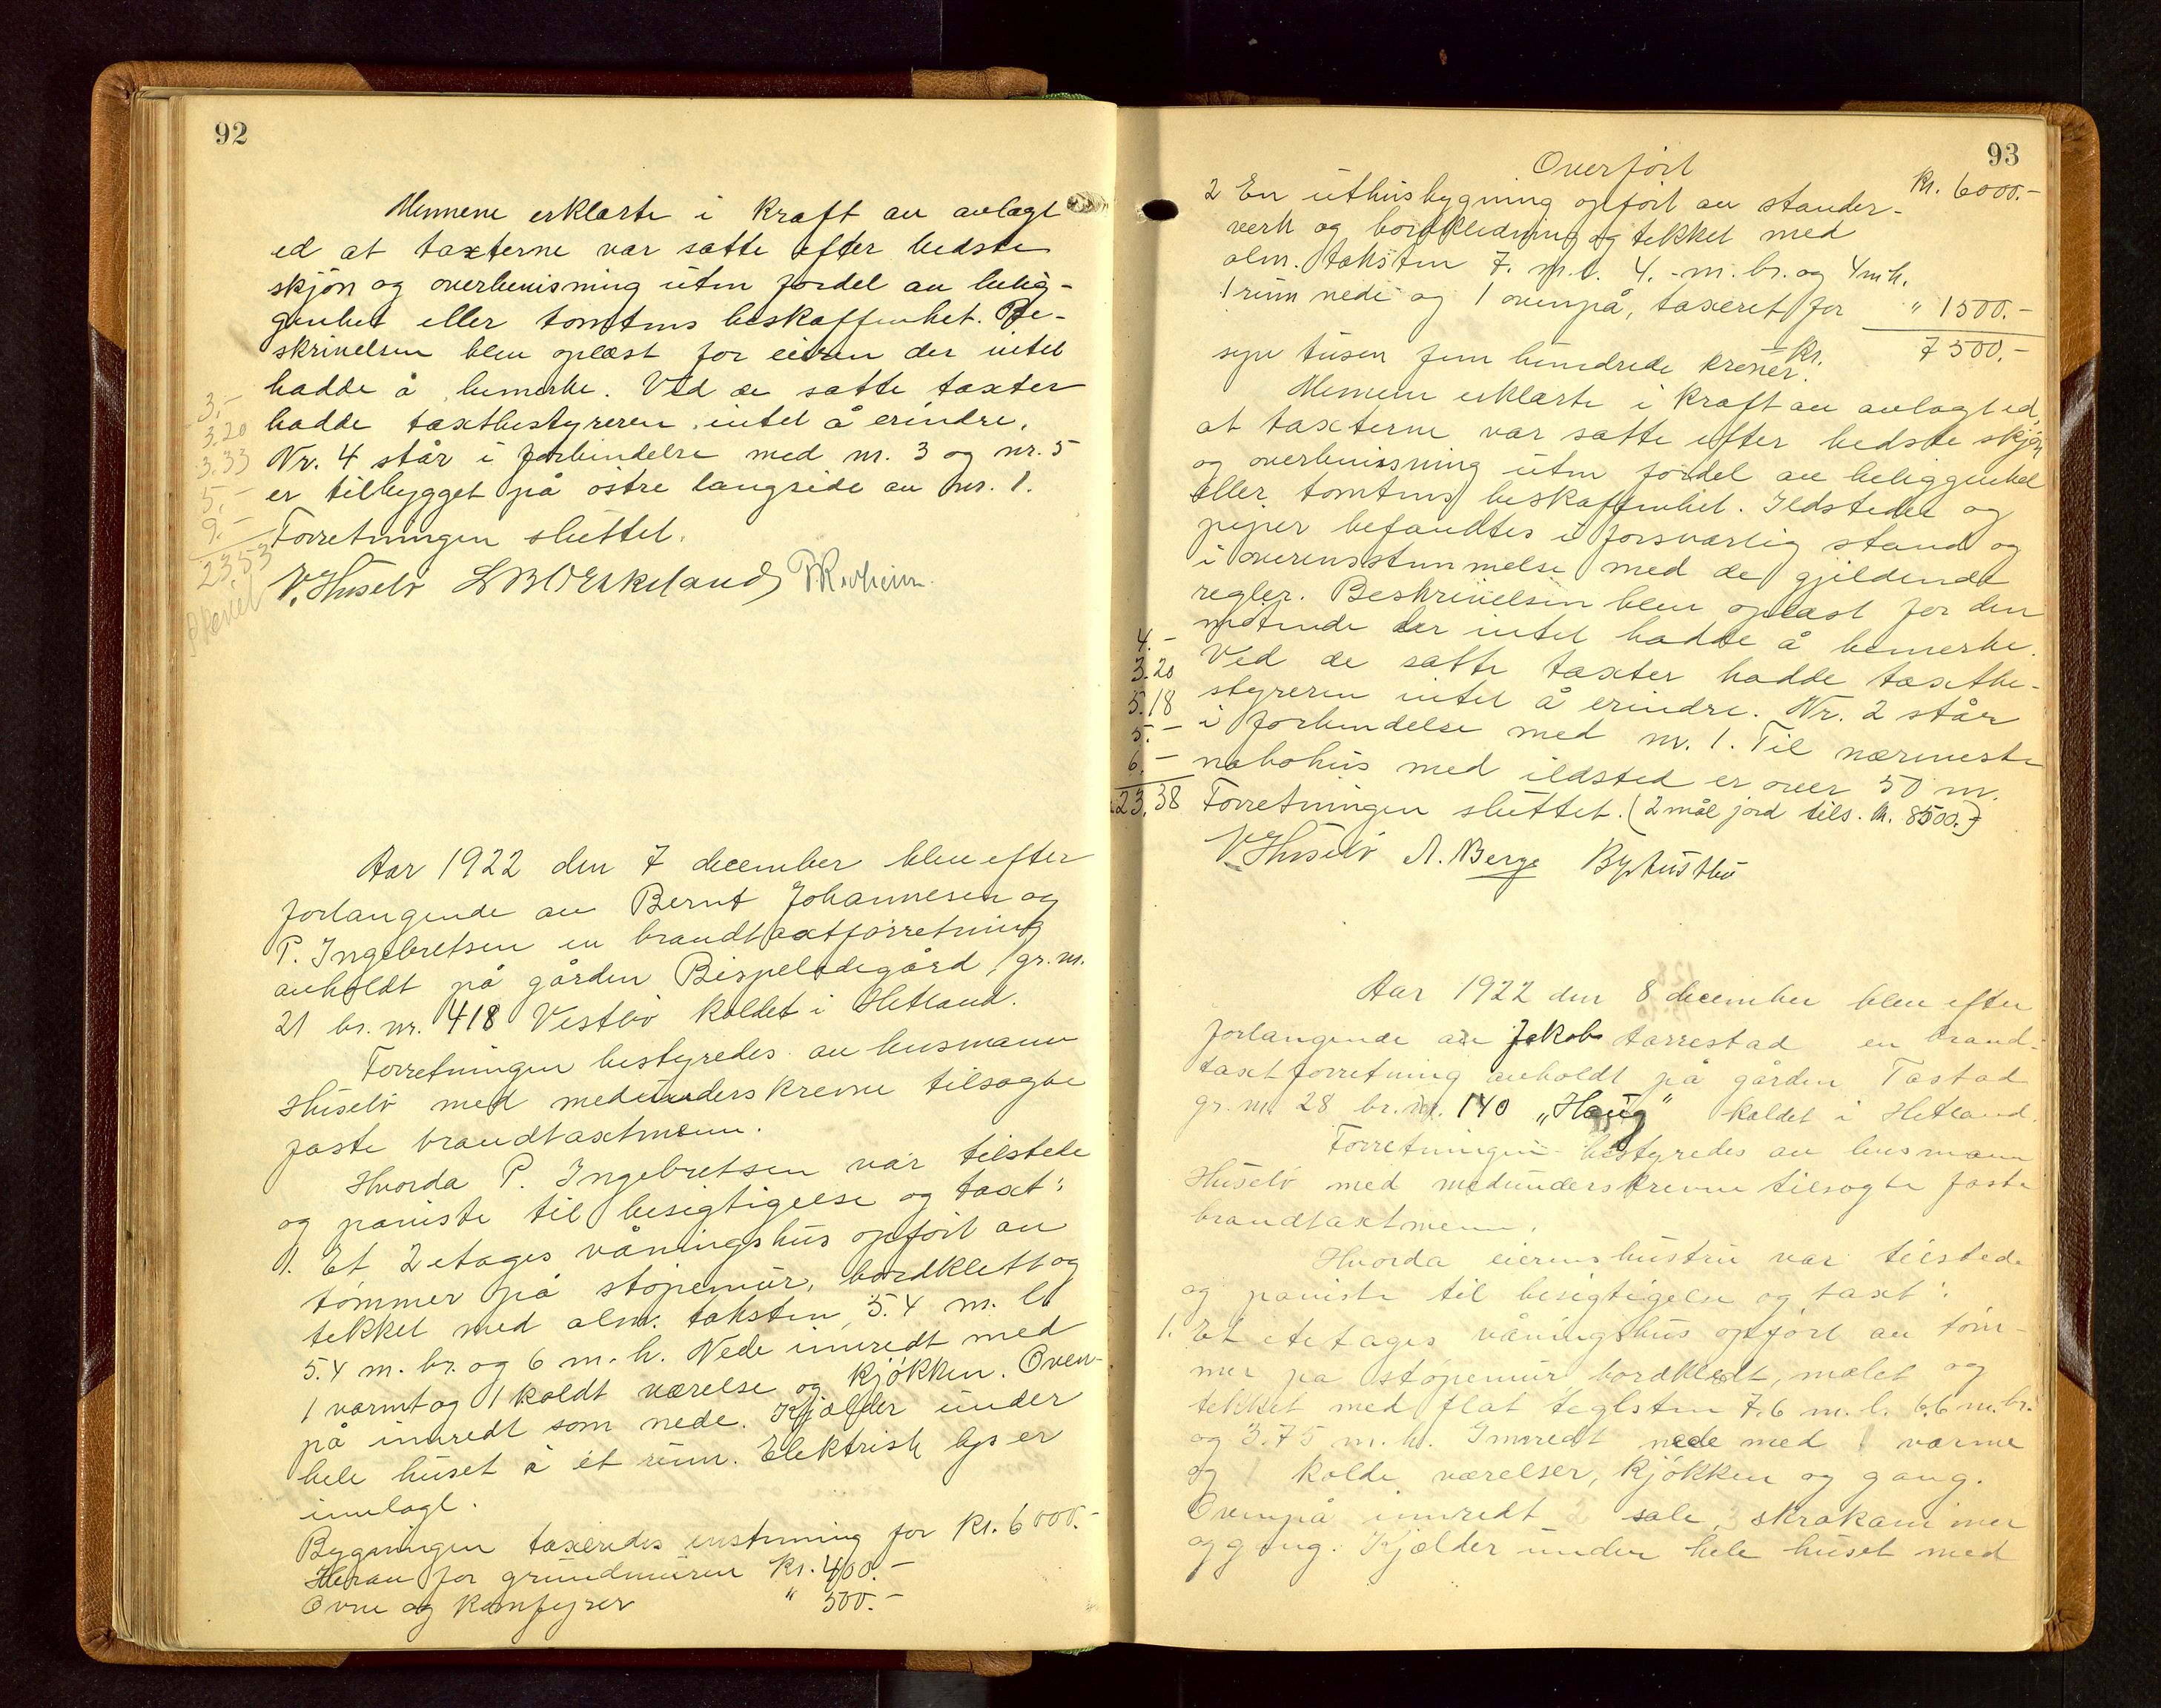 92
Mennene erklærte i kraft av avlagt
ed at taxterne var satte efter bedste
skjøn og overbevisning uten fordel av belig-
genhet eller tomtens beskaffenhet. Be-
skrivelsen blev oplæst for eieren der intet
hadde å bemerke. Ved de satte taxter
hadde taxtbestyreren intet å erindre.
Nr. 4 står i forbindelse med nr. 3 og nr. 5
er tilbygget på østre langside av nr. 1.
Forretningen sluttet.
V. Husebø
3.-
3.20
3.33
5.-
9.-
23 53
Aar 1922 den 7 december blev efter
forlangende av Bernt Johannesen og
P. Ingebretsen en brandtaxtforretning
avholdt på gården Bispeladegård, gr.nr.
21 br. nr. 418 Vestbø kaldet i Hetland.
Forretningen bestyredes av lensmann
Husebø med medunderskrevne tilsagte
faste brandtaxtmenn.
Hvorda P. Ingebretsen var tilstede
og paviste til besigtigelse og taxt:
1. Et 2 etages våningshus opført av
tømmer på støpemur, bordklett og
tekket med alm. taksten, 5.4 m. l.
5.4 m. br. og 6 m. h. Nede innredt med
1 varmt og 1 koldt værelse og kjøkken. Oven-
på innredt som nede. Kjælder under
hele huset à ét rum. Elektrisk lys er
innlagt.
Bygningen taxeredes enstemmig for kr. 6000.-
Herav for grundmuren kr. 400.-
Ovne og komfyrer " 300.-
93
Overført kr. 6000.-
2 En uthusbygning opført av stander-
verk og bordkledning og tekket med
alm. taksten 7. m. l. 4.- m. br. og 4 m h.
1 rum nede og 1 ovenpå, taxeret for " 1500.-
kr. 7500.-
syv tusen fem hundrede kroner.
Mennene erklærte i kraft av avlagt ed
at taxterne var satte efter bedste skjøn
og overbevisning uten fordel av beliggenhet
eller tomtens beskaffenhet. Ildstedee og
piper befandtes i forsvarlig stand og
i overensstemmelse med de gjeldende
regler. Beskrivelsen blev oplæst for den
møtende der intet hadde å bemerke.
Ved de satte taxter hadde taxtbe-
styreren intet å erindre. Nr. 2 står
i forbindelse med nr. 1. Til nærmeste
nabohus med ildsted er over 50 m.
Forretningen sluttet. (2 mål jord tils. kr. 8500.-)
4.-
3.20
5.18
5.-
6.-
23,38
V Husebø A. Berge
Aar 1922 den 8 december blev efter
forlangende av Jakob Harrestad en brand-
taxtforretning avholdt på gården Tastad
gr. nr. 28 br. nr. 140 „Haug" kaldet i Hetland.
Forretningen bestyredes av lensmann
Husebø med medunderskrevne tilsagte faste
brandtaxtmenn.
Hvorda eierens hustru var tilstede
og paviste til besigtigelse og taxt:
1. Et etetages våningshus opført av tøm-
mer på støpemur bordkledt, malet og
tekket med flat teglsten 7.6 m. l. 6.6 m. br.
og 3.75 m. h. Innredt nede med 1 varme
og 1 kolde værelser, kjøkken og gang.
Ovenpå innredt 2 sale, 3 skråkammer
og gang. Kjælder under hele huset med